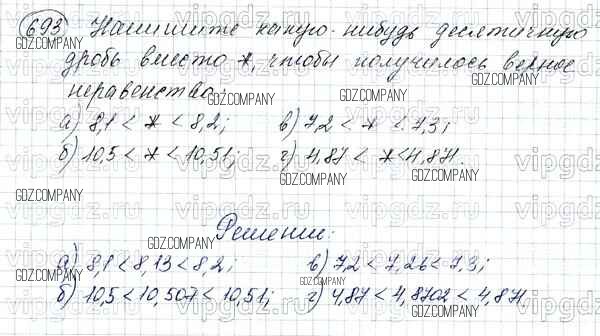 693 Напишите какую-нибудь десятичную
дробь вместо *, чтобы получилось верное
неравенство:
а) 8,1 < * < 8,2; в) 7,2 < * < 7,3;
б) 10,5 < * < 10,51; г) 4,87 < * < 4,871.
Решение:
а) 8,1 < 8,13 < 8,2; в) 7,2 < 7,26 < 7,3;
б) 10,5 < 10,507 < 10,51; г) 4,87 < 4,8702 < 4,871.